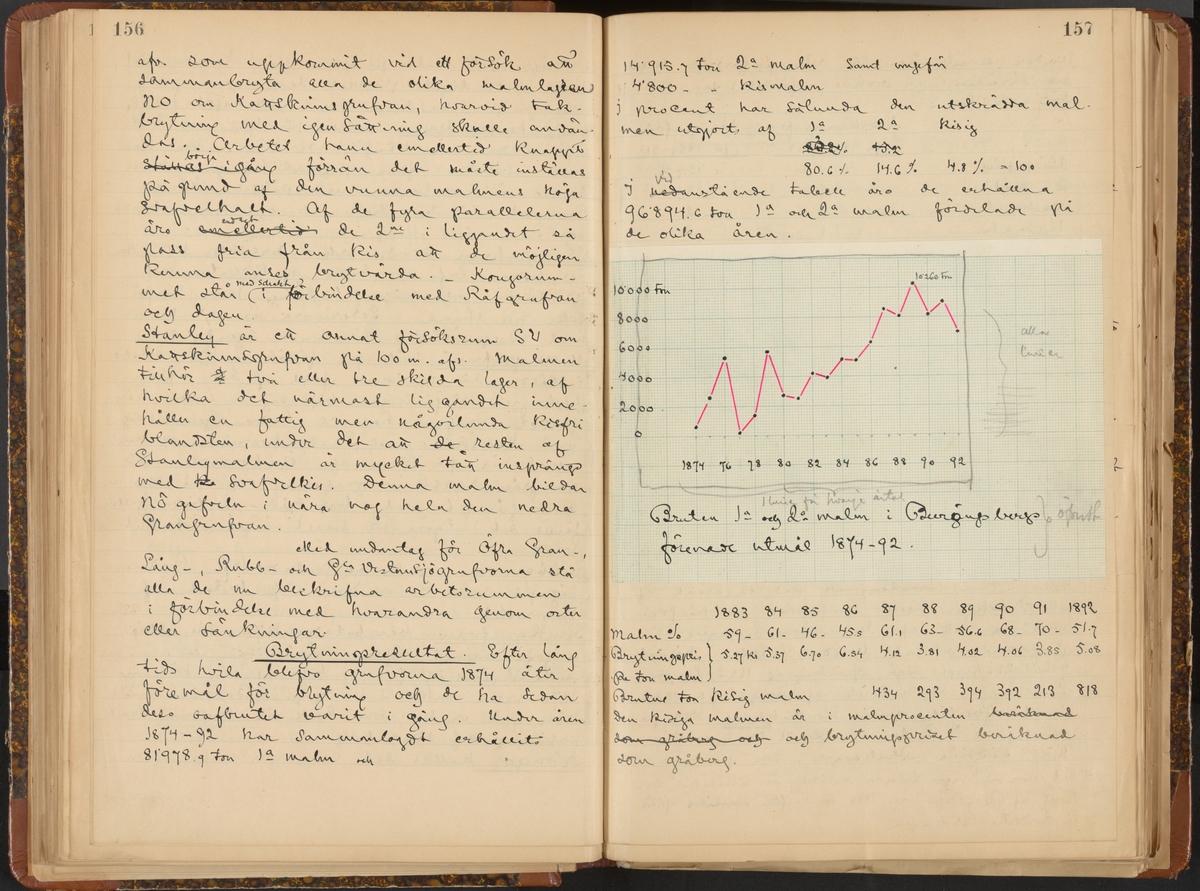 156
afv. som uppkommit vid ett försök att
sammanbryta alla de olika malmlagren
NO om Kattskinnsgrufvan, hvarvid tak-
brytning med igensättning skulle använ-
das. Arbetet hann emellertid knappt
börja förrän det måste inställas
på grund af den vunna malmens höga
svafvelhalt. Af de fyra parallelerna
äro emellertid de 2ne i liggandet så
pass fria från kis att de möjligen
kunna anses brytvärda. – Kongsrum-
met står (med schakt?) i förbindelse med Räfgrufvan
och dagen.
Stanley är ett annat försöksrum SV om
Kattskinnsgrufvan på 100 m. afv. Malmen
tillhör två eller tre skilda lager, af
hvilka det närmast liggandet inne-
håller en fattig men någorlunda kisfri
blandsten, under det att de resten af
Stanleymalmen är mycket tätt insprängd
med svafvelkis. Denna malm bildar
i nära nog hela den nedra
Grangrufvan.
Med undantag för Öfra Gran-,
Lång-, Rubb- och Gla Vestansjögrufvorna stå
alla de nu beskrifna arbetsrummen
i förbindelse med hvarandra genom orter
eller sänkningar.
Brytningsresultat. Efter lång
tids hvila blefvo grufvorna 1874 åter
föremål för brytning och de ha sedan
dess oafbrutet varit i gång. Under åren
1874–92 har sammanlagdt erhållits
81'978.9 ton 1a malm och
157
14'915.7 ton 2a malm samt ungefär
4'800 – „ kismalm
I procent har sålunda den utskrädda mal-
men utgjorts af 1a 2a kisig
80.6 % 14.6 % 4.8 % = 100
I vidanstående tabell äro de erhållna
96'894.6 ton 1a och 2a malm fördelade på
de olika åren.
10'260 ton
10'000 ton
8000
6000
4000
2000
0
alla
linier
1874 76 78 80 82 84 86 88 90 92
linie för hvarje årtal
Bruten 1a och 2a malm i Bergängsbergs
förenade utmål 1874–92.
1883 84 85 86 87 88 89 90 91 1892
Malm % 59– 61– 46– 45.5 61.1 63– 56.6 68– 70– 51.7
Brytningspris 5.27 kr 5.37 6.70 6.54 4.12 3.81 4.02 4.06 3.85 5.08
per ton malm
Brutna ton kisig malm 434 293 394 392 213 818
Den kisiga malmen är i malmprocenten beräknad
som gråberg och och brytningspriset beräknad
som gråberg.